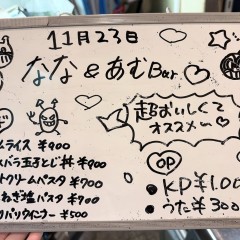 11月23日
なな&あむBar
超おいしくて
オススメ〜
ムライス ¥900
バラ玉子とじ丼 ¥900
トクリームパスタ ¥700
ねぎ塩パスタ ¥700
¥500
OP
・KP¥1.00
・うた¥300